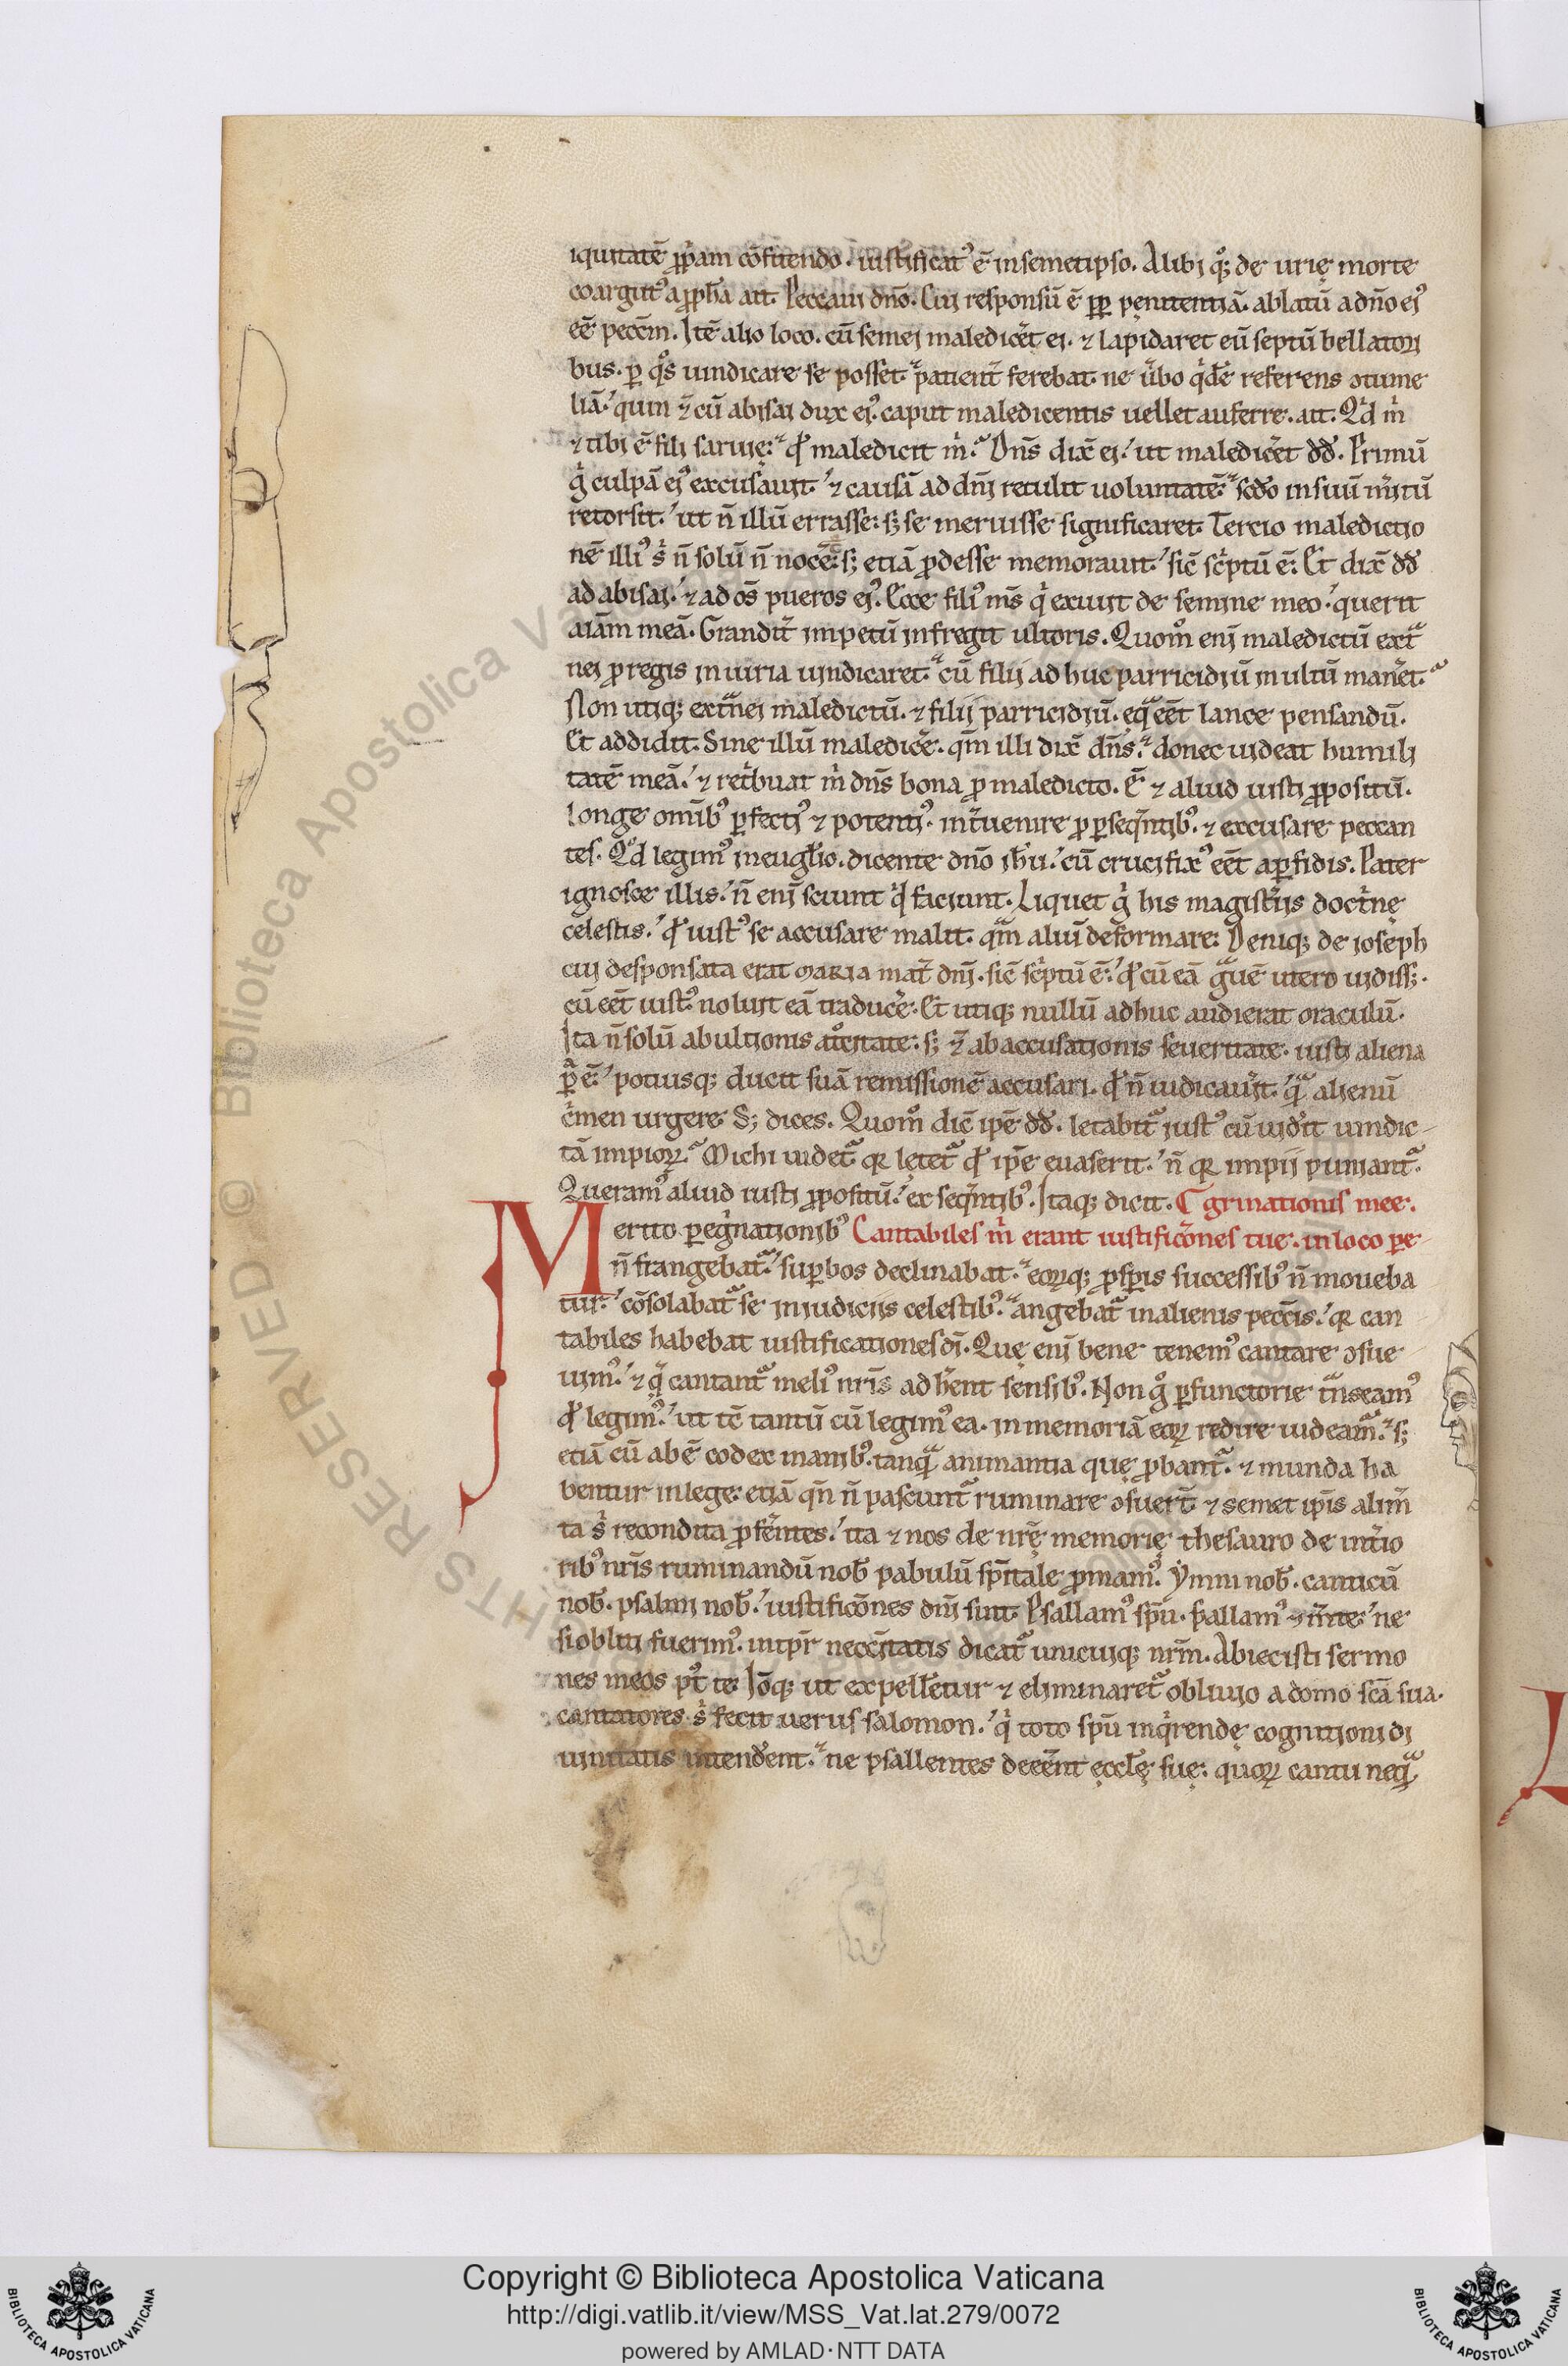 iquitatē ꝓp̄am cōfitendo. iustificatꝰ ē insemetipso. Alibi qͦꝫ de urię morte
coargutꝰ a ꝓph̄a ait. Peccaui dn̄o. Cui responsū ē ꝓp̄ penitentiā. ablatū a dn̄o eiꝰ
eē pecc̄m. Itē alio loco. cū semei maledic̄et ei. ⁊ lapidaret eū septū bellatori
bus. ꝑ qͦs uindicare se posset. p̄atient̄ ferebat. ne ūbo qͥdē referens ɔtume
liā. quin ⁊̄ cū abisai dux eiꝰ caput maledicentis uellet auferre. ait. Qͥd m̄
⁊ tibi ē fili saruię: qꝺ maledicit m̄. Dn̄s dix̄ ei. ut maledic̄et dd̄. Primū
gͦ culpā eiꝰ excusauit. ⁊ causā ad dn̄i retulit uoluntatē. sc̄do in suū m̄itū
retorsit. ut n̄ illū errasse: sꝫ se meruisse significaret. Tercio maledictio
nē illiꝰ sͥ n̄ solū n̄ nocē: sꝫ etiā ꝓdesse memorauit. sic̄ sc̄ptū ē: Et dix̄ dd̄
ad abisai. ⁊ ad os̄ pueros eiꝰ. Ecce filiꝰ ms̄ qͥ exiuit de semine meo. querit
aiām meā. Grandit̄ impetū infregit ultoris. Quomͦ eni maledictū ext̄ͣ
nei ꝓ regis iniuria uindicaret. cū filii ad huc parricidiū inultū man̄et.
Non utiqꝫ ext̄ͣnei maledictū. ⁊ filii parricidiū. eqͣ eēt lance pensandū.
Et addidit. Sine illū maledic̄e. qm̄ illi dix̄ dn̄s. donec uideat humili
tatē meā. ⁊ ret̄buat m̄ dn̄s bona ꝓ maledicto. Ē ⁊ aliud iusti ꝓpositū.
longe omībꝰ ꝑfectiꝰ ⁊ potentiꝰ. int̄uenire ꝓ ꝑseq̄ntibꝰ. ⁊ excusare peccan
tes. Qͦd legimꝰ in euglio. dicente dn̄o ih̄u. cū crucifixꝰ eēt a ꝑfidis. Pater
ignosce illis. n̄ eni sciunt qͥd faciunt. Liquet gͦ his magist̄iis doct̄nę
celestis. qꝺ iustꝰ se accusare malit. qͣm aliū deformare: Deniqꝫ de ioseph
cui desponsata erat maria mat̄ dn̄i. sic̄ sc̄ptū ē. qꝺ cū eā gͣuē utero uidissꝫ.
cū eēt iustꝰ noluit eā traduc̄e. Et utiqꝫ nullū adhuc audierat oraculū.
Ita n̄ solū ab ultionis atͦcitate. sꝫ ⁊̄ ab accusationis seueritate. iusti aliena
ꝑͣ ē. potiusqꝫ ducit suā remissionē accusari. qꝺ n̄ iudicau̓it. qͣ alienū
c̄men urgere. Sꝫ dices. Quomͦ dic̄ ipē dd̄. letabit̄ iustꝰ cū uid̄it uindic-
tā impioꝝ. Michi uidet̄ qꝛ lętet̄ qꝺ ipē euaserit. n̄ qꝛ impii puniant̄.
Queramꝰ aliud iusti ꝓpositū. ex seq̄ntibꝰ. Itaqꝫ dicit. C grinationis mee.
Merito ꝑeg̓nationibꝰ Cantabiles m̄ erant iustific̄ōnes tue. in loco ꝑe-
n̄ frangebat̄. suꝑbos declinabat. eoꝝqꝫ ꝓsꝑis successibꝰ n̄ moueba
tur. cōsolabat̄ se in iudiciis celestibꝰ. angebat̄ in alienis pecc̄is. qꝛ can
tabiles habebat iustificationes di. Quę eni bene tenemꝰ cantare ɔsue
uimꝰ. ⁊ q̄ cantant̄ meliꝰ nr̄is ad h̄ent sensibꝰ. Non gͦ ꝑfunctorie t̄ͣnseamꝰ
qꝺ legimꝰ. ut tc̄ tantū cū legimꝰ ea. in memoriā eoꝝ redire uideam̄. sꝫ
etiā cū abē codex manibꝰ. tanqͣ animantia quę ꝓbant̄. ⁊ munda ha
bentur in lege. etiā qn̄ n̄ pascunt̄ ruminare ɔsuer̄t. ⁊ semet ip̄is alim̄
ta sͥ recondita ꝓfer̄ntes. ita ⁊ nos de nr̄ę memorię thesauro de int̄io
ribꝰ nr̄is ruminandū nob̄ pabulū sp̄itale ꝓmamꝰ. Ymni nob̄. canticū
nob̄. psalmi nob̄. iustific̄ōnes dn̄i sint. Psallamꝰ sp̄ū. psallamꝰ ⁊ m̄te. ne
si obliti fuerimꝰ. int̄pr̄ necc̄itatis dicat̄ unicuiqꝫ nr̄m. Abiecisti sermo
nes meos pꝰt te. Iōqꝫ ut expell̄etur ⁊ eliminaret̄ obliuio a domo sc̄a sua.
cantatores sͥ fecit uerus salomon. qͥ toto sp̄u inqͥrendę cognitioni di
uinitatis intend̄ent. ne psallentes deeēnt ęcclę suę: quoꝝ cantu neqͣ
Copyright © Biblioteca Apostolica Vaticana
http://digi.vatlib.it/view/MSS_Vat.lat.279/0072
powered by AMLAD·NTT DATA